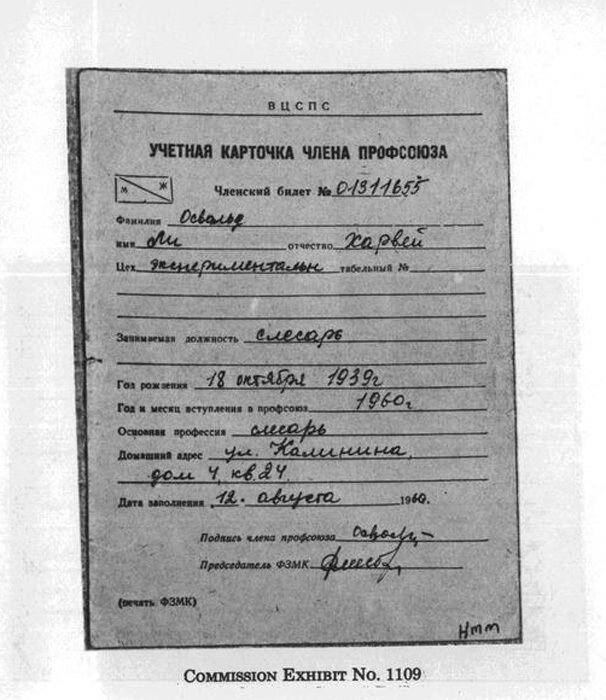 ВЦСПС
УЧЕТНАЯ КАРТОЧКА ЧЛЕНА ПРОФСОЮЗА
М Ж
Членский билет № 01311655
Фамилия Освальд
имя Ли отчество Харвей
Цех экспериментальн табельный №
Занимаемая должность слесарь
Год рождения 18 октября 1939г
Год и месяц вступления в профсоюз 1960г
Основная профессия слесарь
Домашний адрес ул. Калинина,
дом 4, кв. 24.
Дата заполнения 12. августа 1960.
Подпись члена профсоюза
Председатель ФЗМК
(печать ФЗМК)
Hmm
COMMISSION EXHIBIT No. 1109